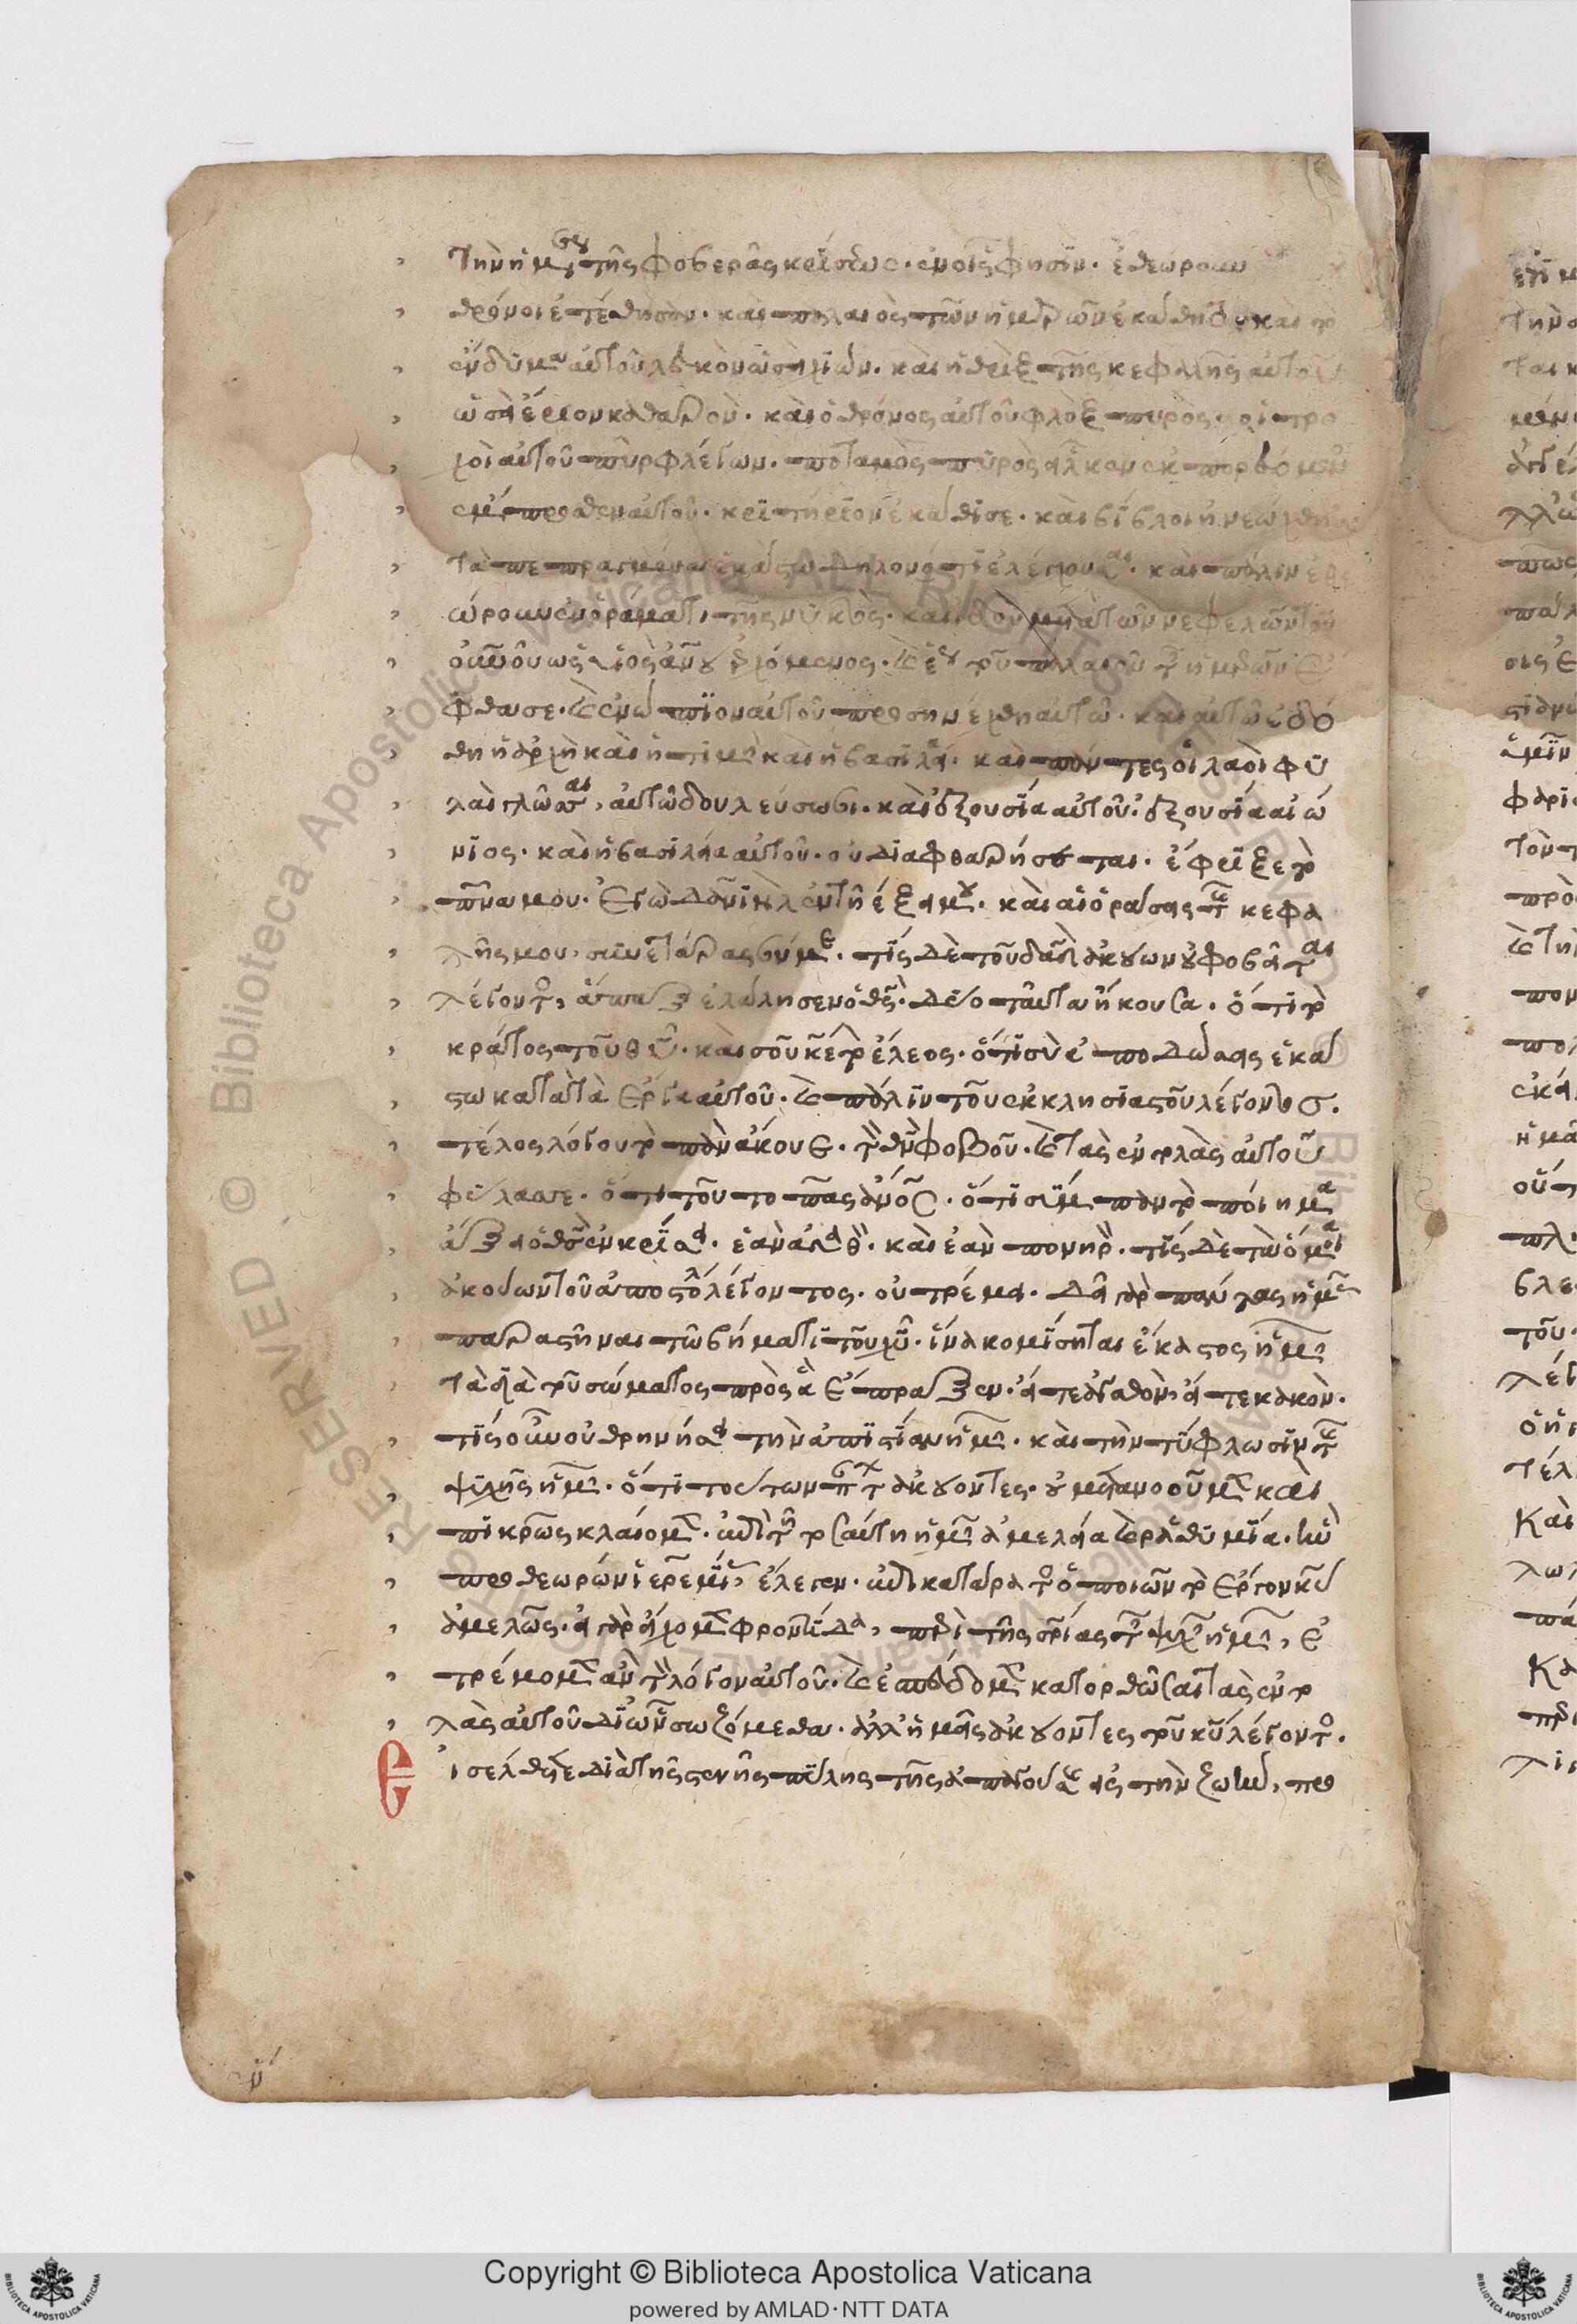 τὴν ἡμ τῆς φοβερᾶς κρίσεως· ἐν οἷς φησιν· ἐθεώρουν
θρόνοι ἐτέθησαν· καὶ παλαιὸς τῶν ἡμερῶν ἐκάθητο καὶ τὸ
ἔνδυμα αὐτοῦ λευκὸν ὡσεὶ χιών· καὶ ἡ θρὶξ τῆς κεφαλῆς αὐτοῦ
ὡσεὶ ἔριον καθαρὸν· καὶ ὁ θρόνος αὐτοῦ φλὸξ πυρὸς· οἱ τρο
χοὶ αὐτοῦ πῦρ φλέγων· ποταμὸς πυρὸς εἷλκεν ἐκπορευόμεν
ἔμπροσθεν αὐτοῦ· κριτήριον ἐκάθισε· καὶ βίβλοι ἠνεώχθησαν
τὰ πεπραγμένα ἑκάστω δηλονότι ἐλέγχουσαι· καὶ πάλιν ἐθε
ώρουν ἐν ὁράματι τῆς νυκτὸς· καὶ ἰδοὺ μετὰ τῶν νεφελῶν τοῦ
οὐνοῦ ὡς υἱὸς ἀνου ἐρχόμενος· καὶ ἕως τοῦ παλαιοῦ τῶν ἡμερῶν ἔ
φθασε· καὶ ἐνώπιον αὐτοῦ προσηνέχθη αὐτῶ· καὶ αὐτῶ ἐδό
θη ἡ ἀρχὴ καὶ ἡ τιμὴ καὶ ἡ βασιλεία· καὶ πάντες οἱ λαοὶ φυ
λαὶ γλῶσσαι, αὐτῶ δουλεύσωσι· καὶ ἐξουσία αὐτοῦ· ἐξουσία αἰώ
νιος· καὶ ἡ βασιλεία αὐτοῦ· οὐ διαφθαρήσεται· ἔφριξε τὸ
πνα μου· Ἐγὼ Δανιὴλ ἐν τῆ ἕξει μου· καὶ αἱ ὁράσεις τῆς κεφα
λῆς μου, συνετάρασσόν με· τίς δὲ τοῦ δαδ ἀκούων οὐ φοβεῖται
λέγοντος, ἅπαξ ἐλάλησεν ὁ θς· δύο ταῦτα ἤκουσα· ὅτι τὸ
κράτος τοῦ θυ· καὶ σοῦ κε τὸ ἔλεος· ὅτι σὺ ἀποδώσεις ἑκά
στω κατὰ τὰ ἔργα αὐτοῦ· καὶ πάλιν τοῦ ἐκκλησιαστοῦ λέγοντος·
τέλος λόγου τὸ πᾶν ἄκουε· τὸν θν φοβοῦ· καὶ τὰς ἐντολὰς αὐτοῦ
φύλασσε· ὅτι τοῦτο πᾶς ἄνος· ὅτι σύμπαν τὸ ποίημα
ἄξει ὁ θς ἐν κρίσει· ἐὰν ἀγαθὸν· καὶ ἐὰν πονηρὸν· τίς δὲ τῶ ὄμματι
ἀκούων τοῦ ἀποστόλου λέγοντος· οὐ τρέμει· δεῖ γὰρ πάντας ἡμᾶς
παραστῆναι τῶ βήματι τοῦ χυ· ἵνα κομίσηται ἕκαστος ἡμῶν
τὰ διὰ τοῦ σώματος πρὸς ἃ ἔπραξεν· εἴτε ἀγαθὸν, εἴτε κακὸν·
τίς οὖν οὐ θρηνήσει τὴν ἀπιστίαν ἡμῶν· καὶ τὴν τύφλωσιν τῆς
ψυχῆς ἡμῶν· ὅτι τοσούτων ἀκούοντες· οὐ μετανοοῦμεν καὶ
πικρῶς κλαίομεν· ἀντὶ τῆ τοσαύτη ἡμῶν ἀμελεία καὶ ῥαθυμία· ἣν
προθεωρῶν ἱερεμίας, ἔλεγεν· ἐπικατάρατος ὁ ποιῶν τὸ ἔργον κυ
ἀμελῶς· εἰ γὰρ εἴχομεν φροντίδα, περὶ τῆς σρίας τῶν ψυχῶν ἡμῶν, ἐ
τρέμομεν ἂν τὸν λόγον αὐτοῦ· καὶ ἐσπεύδομεν κατορθῶσαι τὰς ἐντο
λὰς αὐτοῦ δι' ὧν σωζόμεθα· ἀλλ' ἡμεῖς ἀκούοντες τοῦ κυ λέγοντος·
Εἰσέλθετε διὰ τῆς στενῆς πύλης τῆς ἀπαγούσης εἰς τὴν ζωὴν, προ